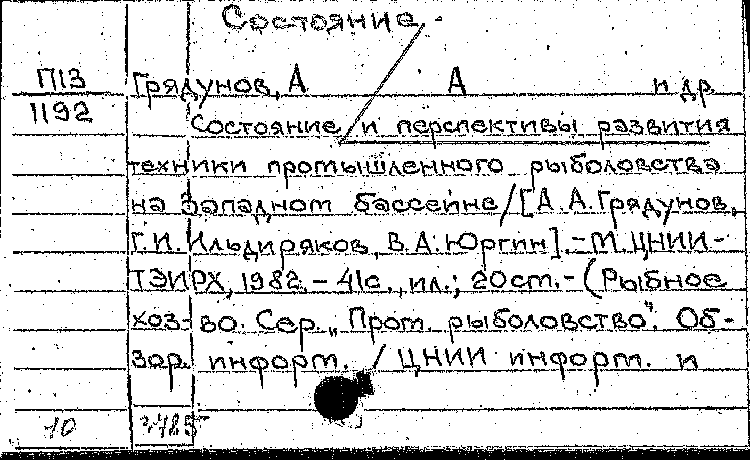 Состояние.
П13 Грядунов, А А и др
1192 Состояние и перспективы развития
техники промышленного рыболовства
на Западном бассейне/[А.А.Грядунов,
Г.И.Ильдиряков, В.А.Юргин].-М.ЦНИИ-
ТЭИРХ, 1982.-41с., ил.; 20см.-(Рыбное
хоз-во. Сер. „Пром. рыболовство". Об-
зор. информ. / ЦНИИ информ. и
10